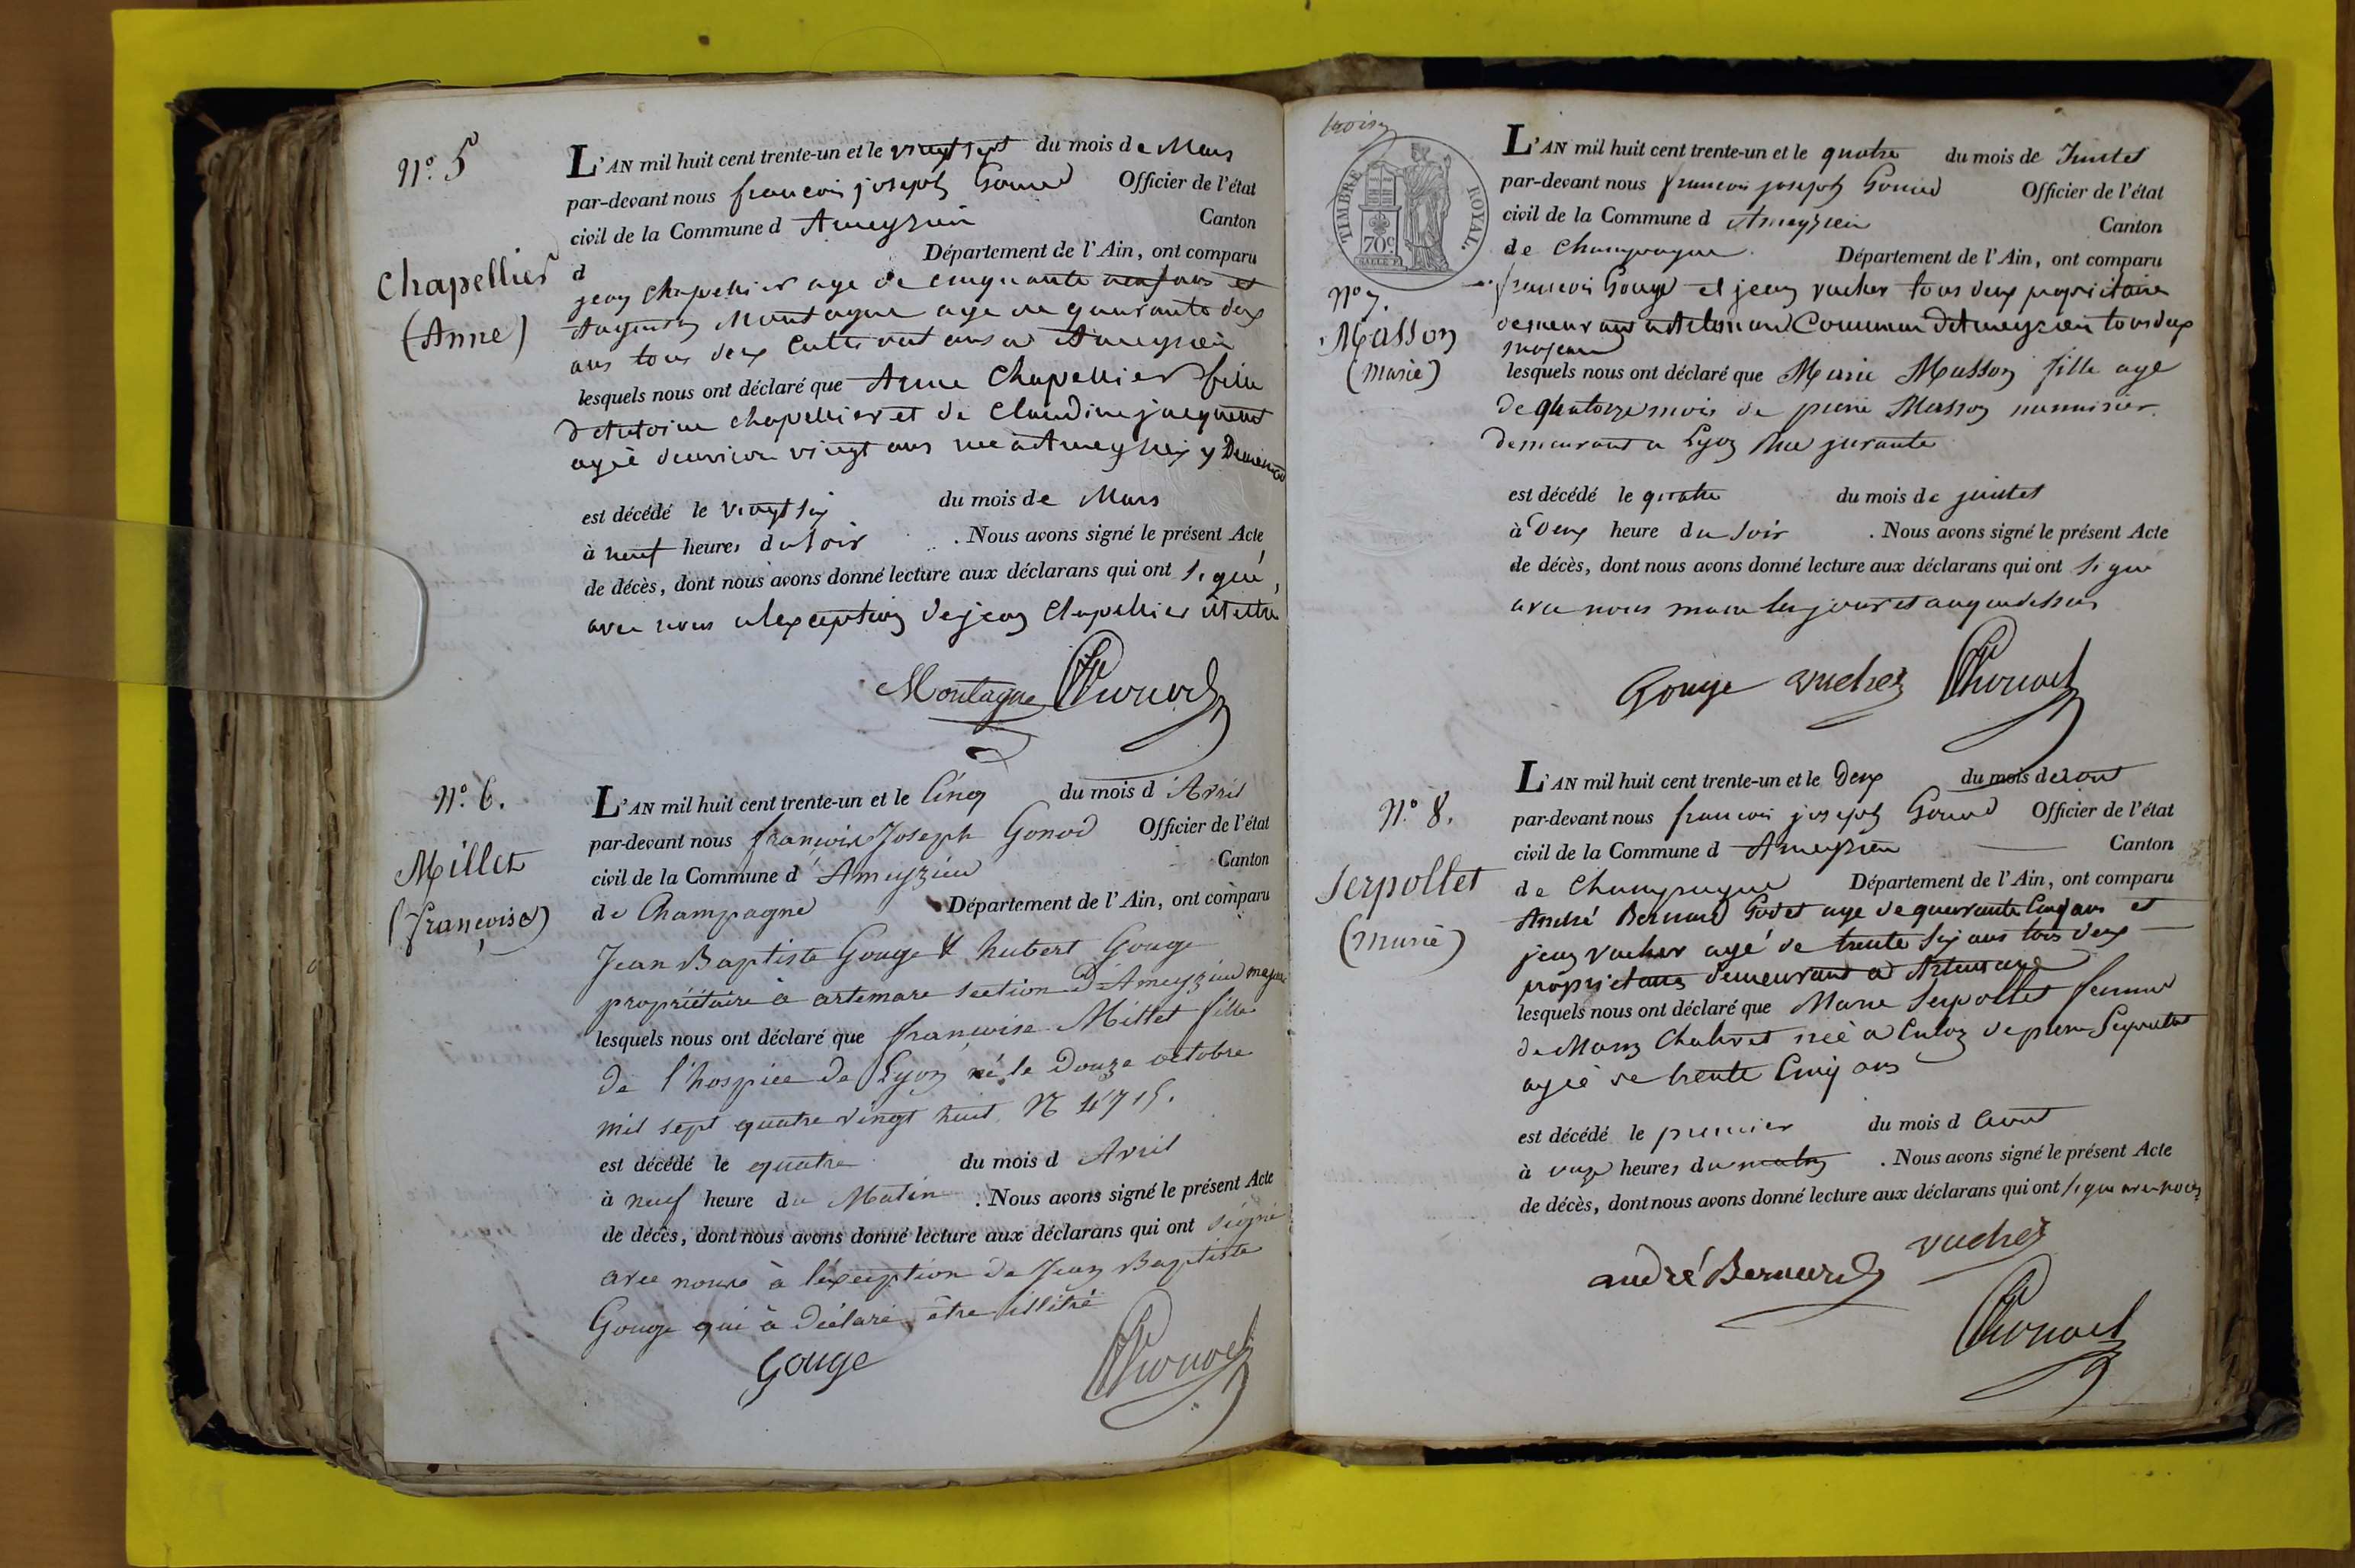 N.o 5
Chapellier
(Anne)
L'AN mil huit cent trente-un et le vingt sept du mois de Mars
par-devant nous francois joseph Gonod Officier de l'état
civil de la Commune d Ameyzieu Canton
d Département de l'Ain, ont comparu
jean Chapellier age de cinquante neuf ans et
Augustin Montagne age de quarante deux
ans tous deux Cultivateurs a Ameyzieu
lesquels nous ont déclaré que Anne Chapellier fille
d'Antoine chapellier et de Claudine jacquent
agée denviron vingt ans née a Ameyzieu y Demeurant
est décédé le vingt six du mois de Mars
à neuf heures du soir . Nous avons signé le présent Acte
de décès, dont nous avons donné lecture aux déclarans qui ont signé,
avec nous a lexception de jean Chapellier illettré
Montagne Gonod
N.o 6.
Millet
(françoise)
L'AN mil huit cent trente-un et le Cinq du mois d'Avril
par-devant nous françois Joseph Gonod Officier de l'état
civil de la Commune d'Ameyzieu Canton
de Champagne Département de l'Ain, ont comparu
Jean Baptiste Gouge & hubert Gouge
propriétaire à artemare section d'Ameyzieu majeur
lesquels nous ont déclaré que françoise Millet fille
de l'hospice de Lyon né le Douze octobre
mil sept quatre vingt huit, N 4715.
est décédé le quatre du mois d Avril
à neuf heure du Matin . Nous avons signé le présent Acte
de décès, dont nous avons donné lecture aux déclarans qui ont signé
avec nous à léxception de Jean Baptiste
Gouge qui à déclaré être illétré
Gouge Gonod
TIMBRE ROYAL.
70c
N.o 7.
Masson
(marie)
L'AN mil huit cent trente-un et le quatre du mois de Juillet
par-devant nous francois joseph Gonod Officier de l'état
civil de la Commune d Ameyzieu Canton
de Champagne. Département de l'Ain, ont comparu
francois Gouge et jean vucher tous deux propriétaire
demeurant a Commune d'Ameyzieu tous deux
majeur
lesquels nous ont déclaré que Marie Masson fille age
de quatorze mois de pierre Masson menuisier
demeurant a Lyon Rue
est décédé le quatre du mois de juillet
à Deux heure du soir . Nous avons signé le présent Acte
de décès, dont nous avons donné lecture aux déclarans qui ont signé
avec nous maire les jour et an que dessus
Gouge vucher Gonod
N.o 8.
Serpollet
(marie)
L'AN mil huit cent trente-un et le Deux du mois de aout
par-devant nous francois joseph Gonod Officier de l'état
civil de la Commune d Ameyzieu Canton
de Champagne Département de l'Ain, ont comparu
André Bernard Godet age de quarante Cinq ans et
jean vucher agé de trente six ans tous deux
propriétaires demeurant a Artemare
lesquels nous ont déclaré que Marie Serpollet femme
de née a Culoz de pierre Serpollet
agée de trente Cinq ans
est décédé le premier du mois d Aout
à onze heures du matin . Nous avons signé le présent Acte
de décès, dont nous avons donné lecture aux déclarans qui ont signé avec nous
andré Bernard vucher
Gonod